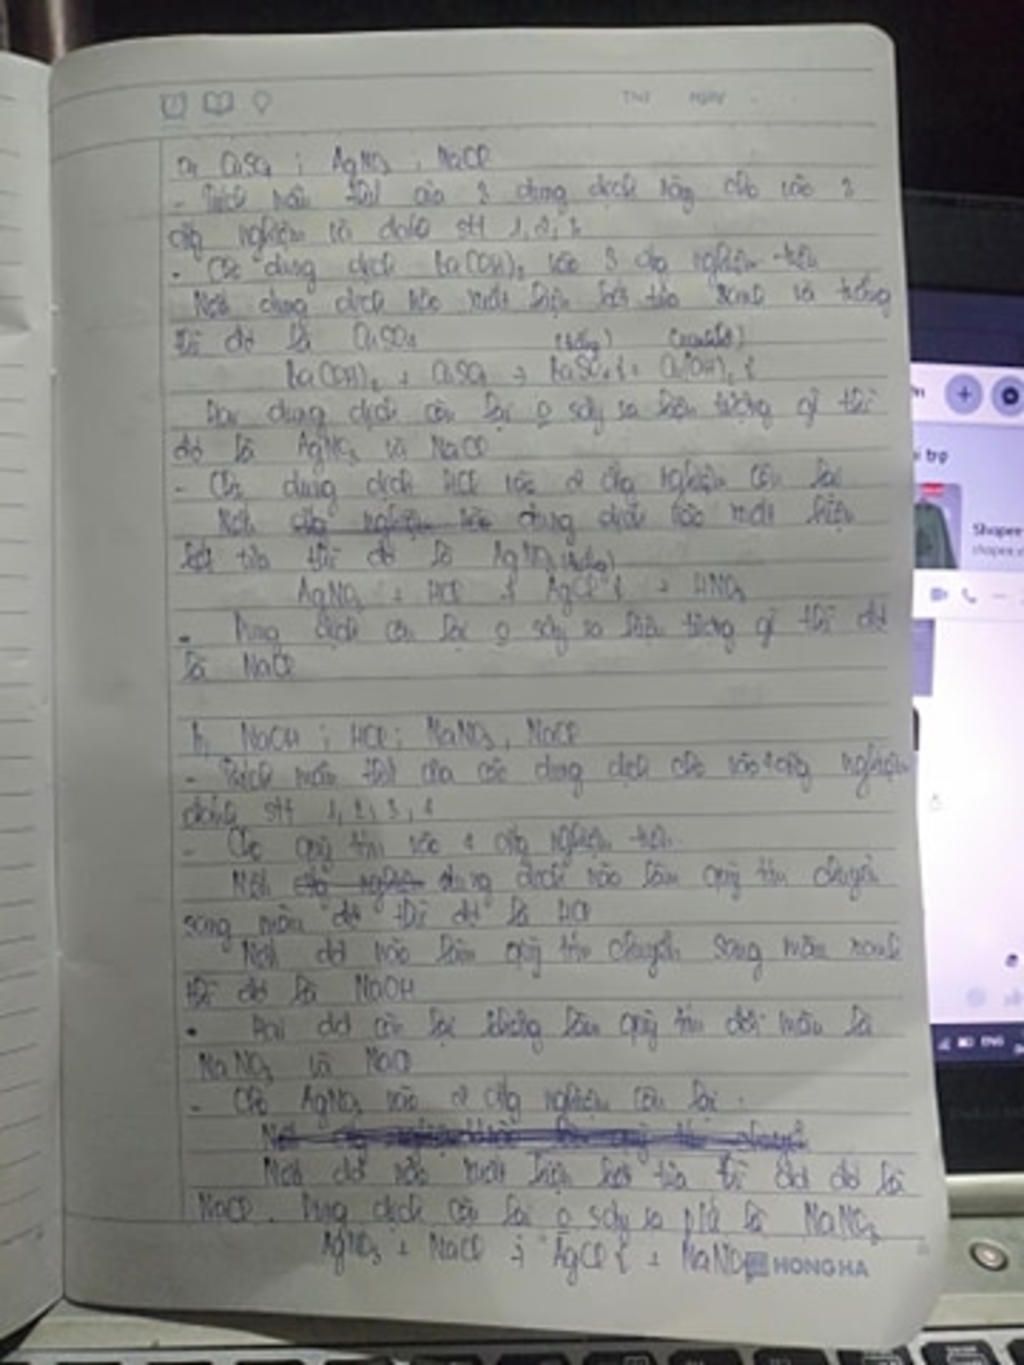 Thứ Ngày
a, CuSO4 ; AgNO3 , NaCl
- Trích mẫu thử của 3 dung dịch này cho vào 3
ống nghiệm và đánh stt 1, 2, 3
- Cho dung dịch Ba(OH)2 vào 3 ống nghiệm trên
Nếu dung dịch nào xuất hiện kết tủa xanh và trắng
thì đó là CuSO4 (trắng) (xanh)
Ba(OH)2 + CuSO4 → BaSO4↓ + Cu(OH)2↓
Hai dung dịch còn lại o xảy ra hiện tượng gì thì
đó là AgNO3 và NaCl
- Cho dung dịch HCl vào 2 ống nghiệm còn lại
Nếu dung dịch nào xuất hiện
kết tủa thì đó là AgNO3 (trắng)
AgNO3 + HCl → AgCl↓ + HNO3
- Dung dịch còn lại o xảy ra hiện tượng gì thì đó
là NaCl
b, NaOH ; HCl ; NaNO3 , NaCl
- Trích mẫu thử của các dung dịch cho vào 4 ống nghiệm
đánh stt 1, 2, 3, 4
- Cho quỳ tím vào 4 ống nghiệm trên.
Nếu dung dịch nào làm quỳ tím chuyển
sang màu đỏ thì đó là HCl
Nếu dd nào làm quỳ tím chuyển sang màu xanh
thì đó là NaOH
- Hai dd còn lại không làm quỳ tím đổi màu là
NaNO3 và NaCl
- Cho AgNO3 vào 2 ống nghiệm còn lại.
Nếu dd nào xuất hiện kết tủa thì dd đó là
NaCl. Dung dịch còn lại o xảy ra pứ là NaNO3
AgNO3 + NaCl → AgCl↓ + NaNO3
HONG HA
Shopee
ENG